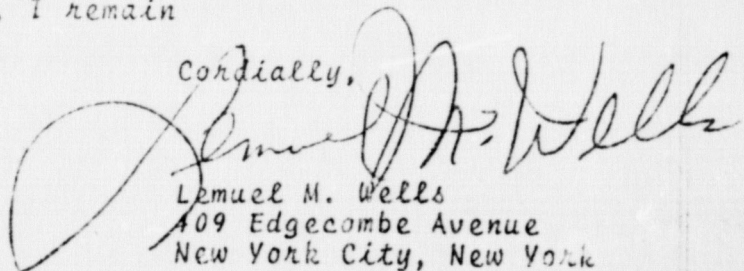 , I remain
Cordially,
Lemuel M. Wells
Lemuel M. Wells
409 Edgecombe Avenue
New York City, New York